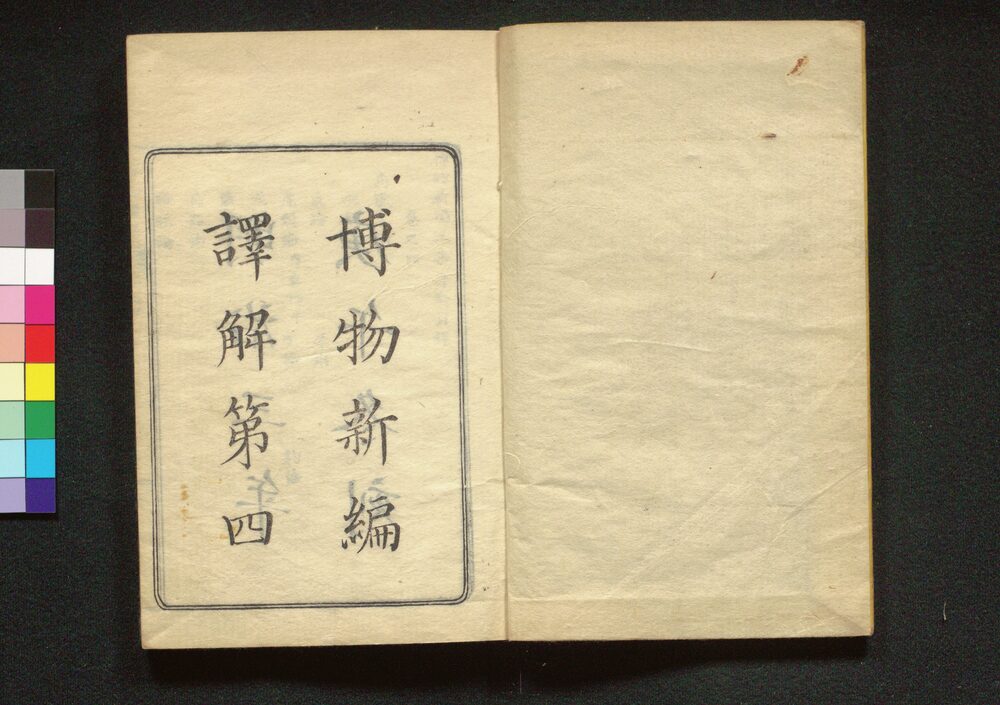 博物新編
譯解第四